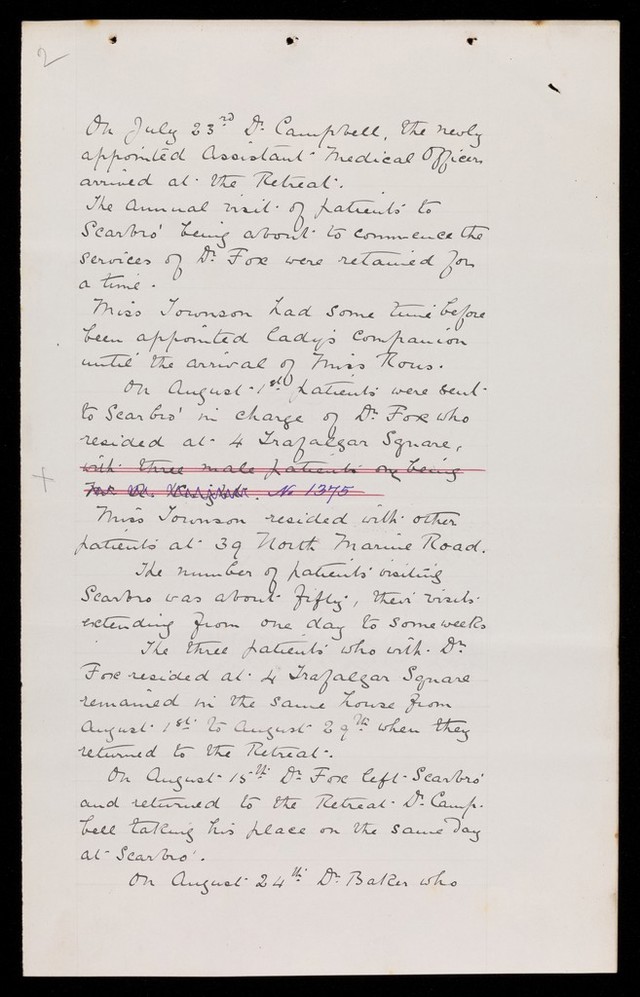 2
On July 23rd Dr. Campbell, the newly
appointed Assistant Medical Officer
arrived at the Retreat.
The annual visit of patients to
Scarbro' being about to commence the
services of Dr. Fox were retained for
a time.
Miss Townson had some time before
been appointed lady's companion
until the arrival of Miss Rous.
On August 1st patients were sent
to Scarbro' in charge of Dr. Fox who
resided at 4 Trafalgar Square,
with three male patients one being
No 1375
Miss Townson resided with other
patients at 39 North Marine Road.
The number of patients visiting
Scarbro was about fifty, their visits
extending from one day to some weeks
The three patients who with Dr.
Fox resided at 4 Trafalgar Square
remained in the same house from
August 1st to August 29th when they
returned to the Retreat.
On August 15th Dr. Fox left Scarbro'
and returned to the Retreat Dr. Camp-
bell taking his place on the same day
at Scarbro'.
On August 24th Dr. Baker who